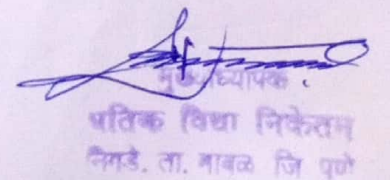 मुख्याध्यापक
पतिक विद्या निकेतन
निगडे. ता. मावळ जि पुणे